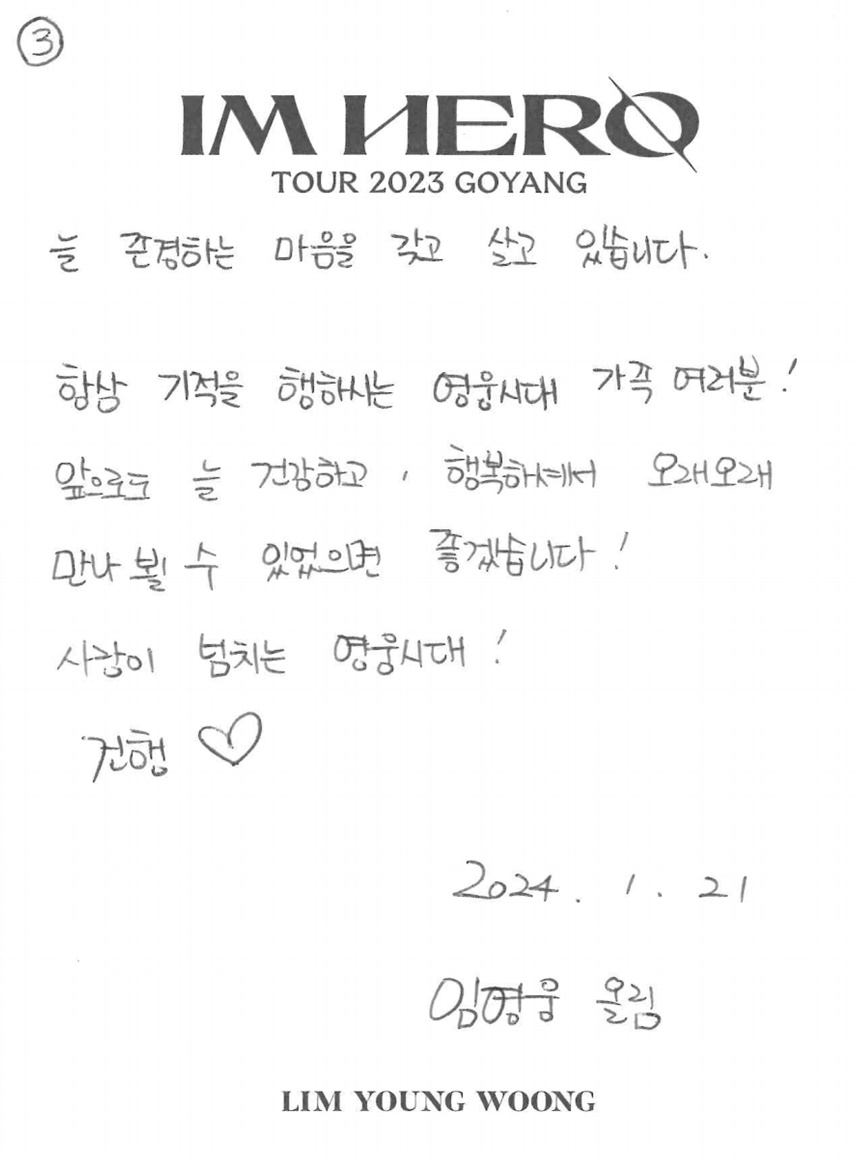 3
IM HERO
TOUR 2023 GOYANG
늘 존경하는 마음을 갖고 살고 있습니다.
항상 기적을 행하시는 영웅시대 가족 여러분!
앞으로도 늘 건강하고, 행복하셔서 오래오래
만나 뵐 수 있었으면 좋겠습니다!
사랑이 넘치는 영웅시대!
건행 ♡
2024. 1. 21
임영웅 올림
LIM YOUNG WOONG